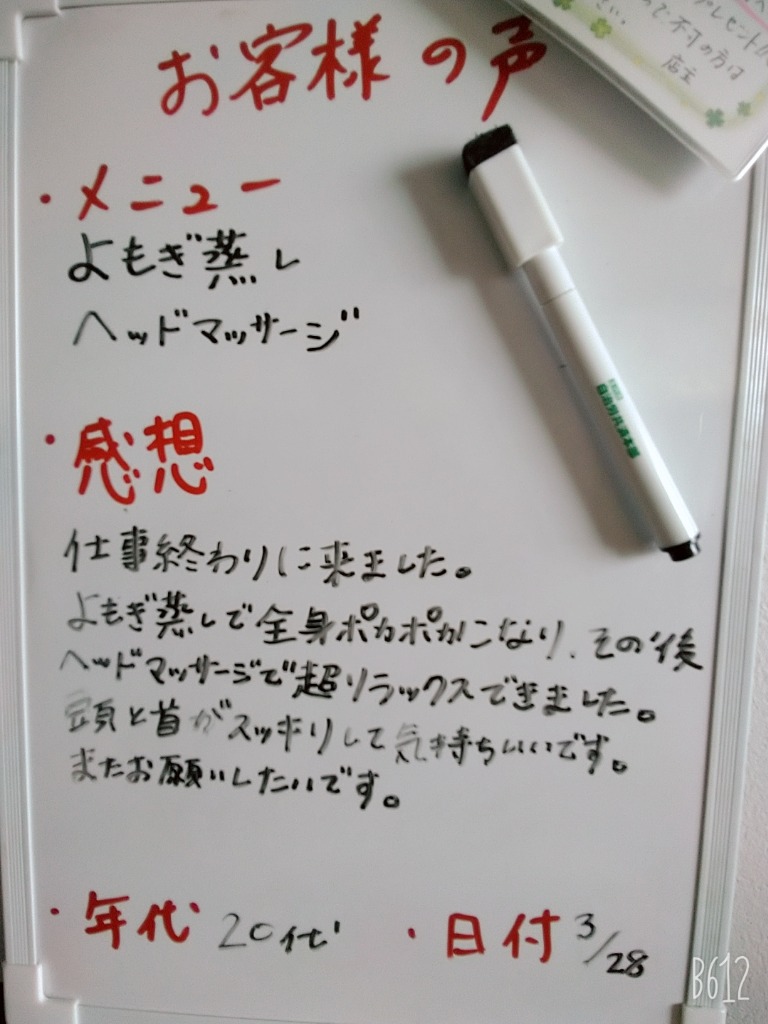 お客様の声
・メニュー
よもぎ蒸し
ヘッドマッサージ
・感想
仕事終わりに来ました。
よもぎ蒸しで全身ポカポカになり、その後
ヘッドマッサージで超リラックスできました。
頭と首がスッキリして気持ちいいです。
またお願いしたいです。
・年代 20代 ・日付 3/28
プレゼント
ので不可の方は
店主
B612